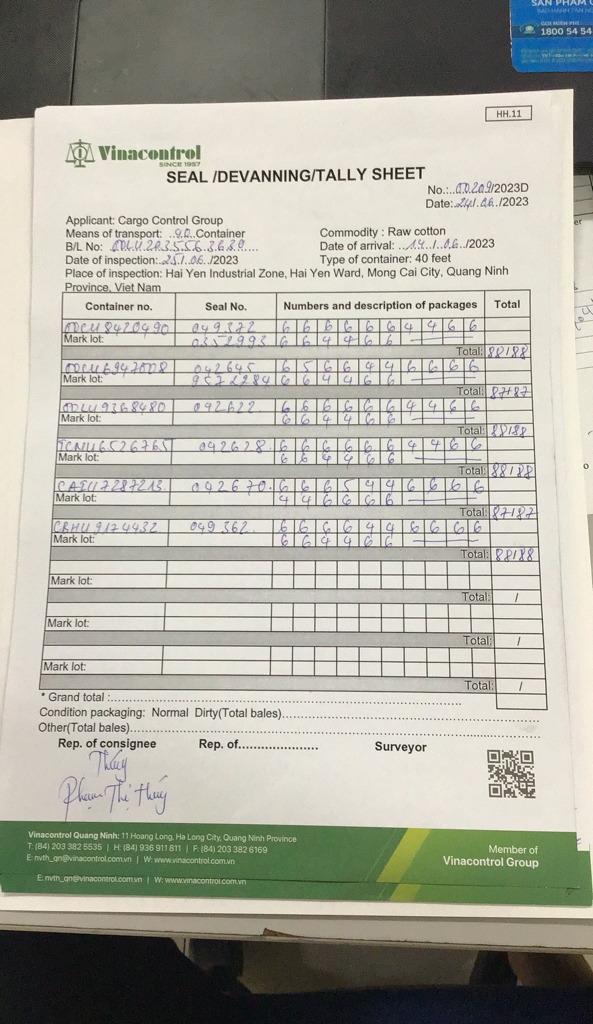 SẢN PHẨM
GỌI MIỄN PHÍ
1800 54 54
HH.11
Vinacontrol
SINCE 1957
SEAL /DEVANNING/TALLY SHEET
No.:..00209/2023D
Date:.24/.06./2023
Applicant: Cargo Control Group
Means of transport: Container Commodity : Raw cotton
B/L No: Date of arrival: ..14../.06./2023
Date of inspection: .25/.06./2023 Type of container: 40 feet
Place of inspection: Hai Yen Industrial Zone, Hai Yen Ward, Mong Cai City, Quang Ninh
Province, Viet Nam
Container no. Seal No. Numbers and description of packages Total
049372 6 6 6 6 6 6 4 4 6 6
Mark lot: 0352993 6 6 4 4 6 6
Total: 88/88
042645 6 5 6 6 4 4 6 6 6 6
Mark lot: 6 6 4 4 6 6
Total: 87/87
042622 6 6 6 6 6 6 4 4 6 6
Mark lot: 6 6 4 4 6 6
Total: 88/88
TCNU6526765 042628 6 6 6 6 6 6 4 4 6 6
Mark lot: 6 6 4 4 6 6
Total: 88/88
042670. 6 6 6 5 4 4 6 6 6 6
Mark lot: 4 4 6 6 6 6
Total: 87/87
049362 6 6 6 6 4 4 6 6 6 6
Mark lot: 6 6 4 4 6 6
Total: 88/88
Mark lot:
Total: /
Mark lot:
Total: /
Mark lot:
Total: /
* Grand total :
Condition packaging: Normal Dirty(Total bales)
Other(Total bales)
Rep. of consignee Rep. of Surveyor
Thúy
Phạm Thị Thúy
Vinacontrol Quang Ninh: 11 Hoang Long, Ha Long City, Quang Ninh Province
T: (84) 203 382 5535 | H: (84) 936 911 811 | F: (84) 203 382 6169
E: nvth_qn@vinacontrol.com.vn | W: www.vinacontrol.com.vn
Member of
Vinacontrol Group
E: nvth_qn@vinacontrol.com.vn | W: www.vinacontrol.com.vn